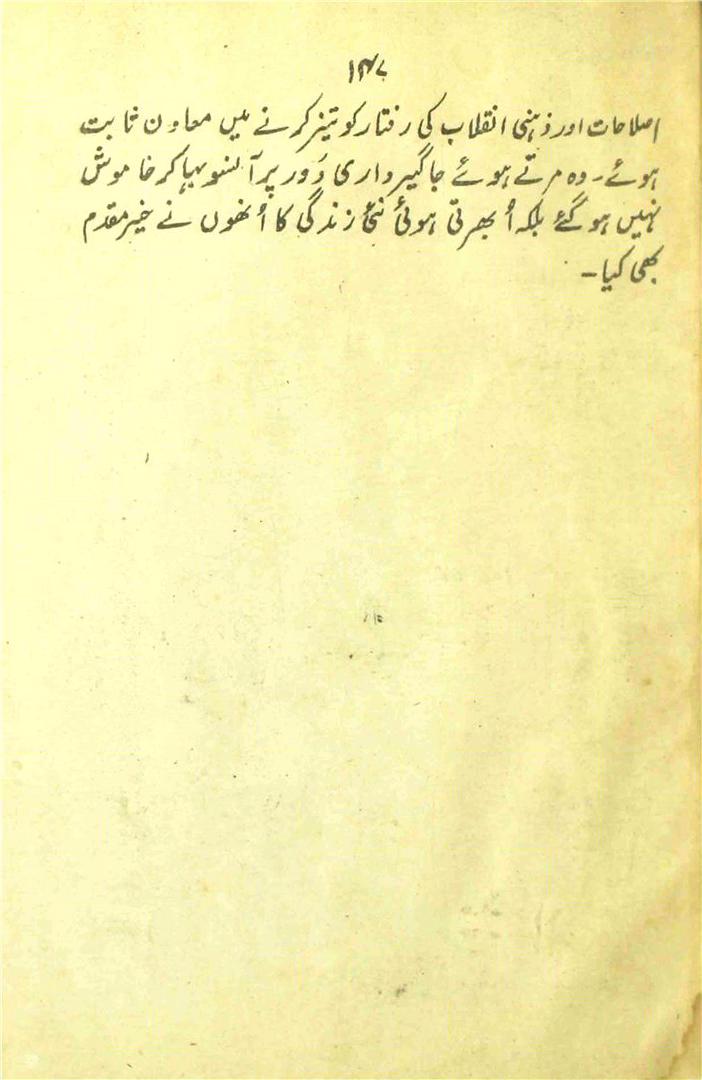 ۱۴۷
اصلاحات اور ذہنی انقلاب کی رفتار کو تیز کرنے میں معاون ثابت
ہوئے۔ وہ مرتے ہوئے جاگیرداری دَور پر آنسو بہا کر خاموش
نہیں ہو گئے بلکہ اُبھرتی ہوئی نئی زندگی کا اُنھوں نے خیر مقدم
بھی کیا۔